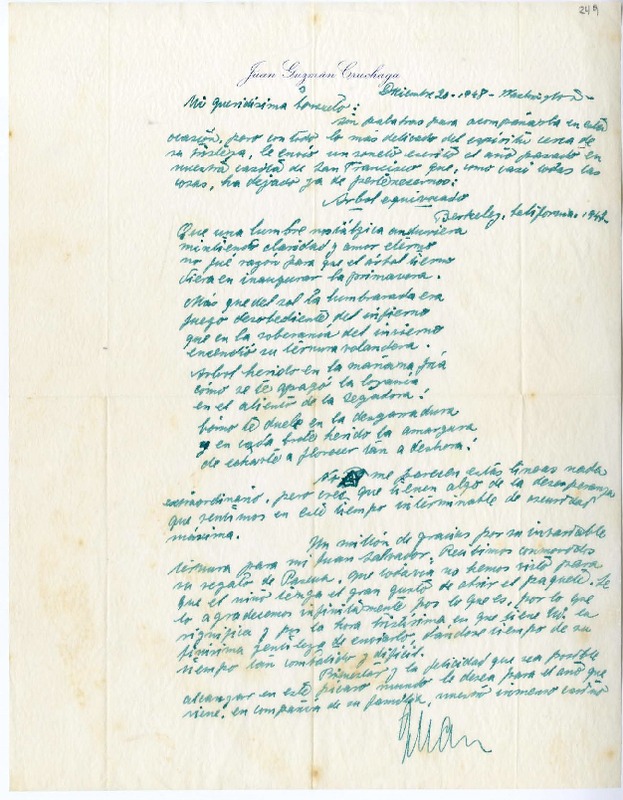 249
Juan Guzmán Cruchaga
Diciembre 20-1948-Washington-
Mi queridísima Consuelo:
son palabras para acompañarla en esta
ocasión, pero con todo lo más delicado del espíritu cerca de
su tristeza, le envío un soneto escrito el año pasado en
nuestra casita de San Francisco que, como casi todas las
cosas, ha dejado ya de pertenecernos:
Arbol equivocado
Berkeley, California. 194
Que una lumbre nostálgica anduviera
mintiendo claridad y amor eterno
no fué razón para que el árbol tierno
diera en inaugurar la primavera.
Más que del sol la lumbrarada era
fuego desobediente del infierno
que en la soberanía del invierno
encendió su ternura volandera.
Arbol herido en la mañana fría
cómo se te apagó la lozanía
en el aliento de la segadora!
Cómo te duele en la desgarradura
y en cada brote herido la amargura
de echarte a florecer tan a deshora!
No me parecen estas líneas nada
extraordinario, pero creo que tienen algo de la desesperanza
que sentimos en este tiempo interminable de oscuridad
máxima.
Un millón de gracias por su invariable
ternura para mi Juan Salvador. Recibimos conmovidos
su regalo de Pascua, que todavía no hemos visto para
que el niño tenga el gran gusto de abrir el paquete. Se
lo agradecemos infinitamente por lo que es, por lo que
significa y por la hora tristísima en que tiene Ud. la
finísima gentileza de enviarlo, dándose tiempo de su
tiempo tan combatido y difícil.
Bienestar y la felicidad que sea posible
alcanzar en este pícaro mundo le desea para el año que
viene, en compañía de su familia, nuestro inmenso cariño
Juan